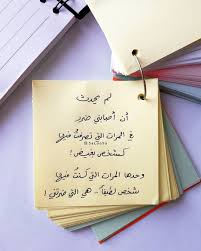 لم يحدث
أن أصابني ضرر
في المرات التي تصرفتُ فيها
كشخص بغيض !
وحدها المرات التي كنتُ فيها
شخص لطيفًا.. هي التي ضرتني !